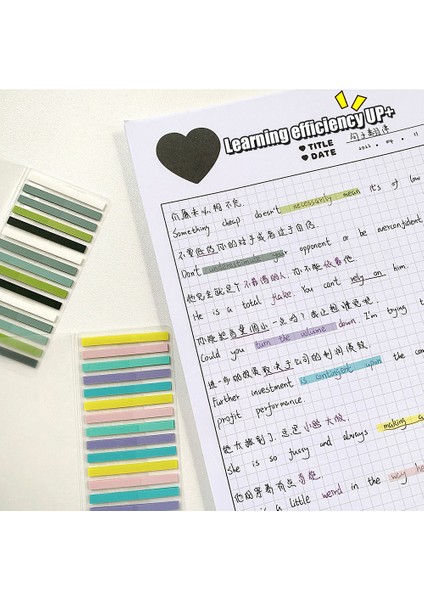 Learning efficiency UP+
TITLE 句子翻译
DATE 2021 . 04 . 11
价廉未必物不
Something cheap doesn't necessarily mean it's of low
不要低估你的对手或者过于自信
Don't underestimate your opponent or be overconfident
他完全就是个不靠谱的人, 你不能依靠他.
He is a total flake. You can't rely on him.
你能把音量调小一点吗? 我正想
Could you turn the volume down. I'm trying
进一步的投资取决于公司的利润表现.
Further investment is contingent upon the
profit performance.
她太挑剔了, 总是小题大做.
She is so fussy and always making
他的穿着有点奇怪.
is a little weird in the way he